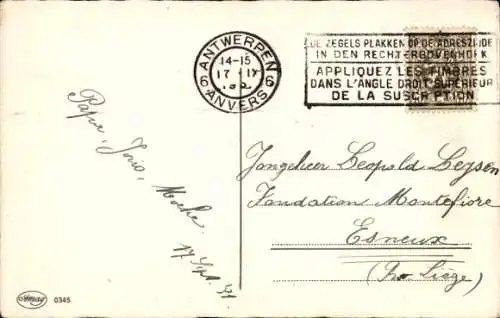 ANTWERPEN
14-15
17 IX
6 6
ANVERS
DE ZEGELS PLAKKEN OP DE ADRESZIJDE
IN DEN RECHTERBOVENHOEK
APPLIQUEZ LES TIMBRES
DANS L'ANGLE DROIT SUPÉRIEUR
DE LA SUSCRIPTION
Papa,
17 Sept. 31
Jongeheer Leopold Leysen
Fondation Montefiore
Esneux
(Prov. Liège)
0345